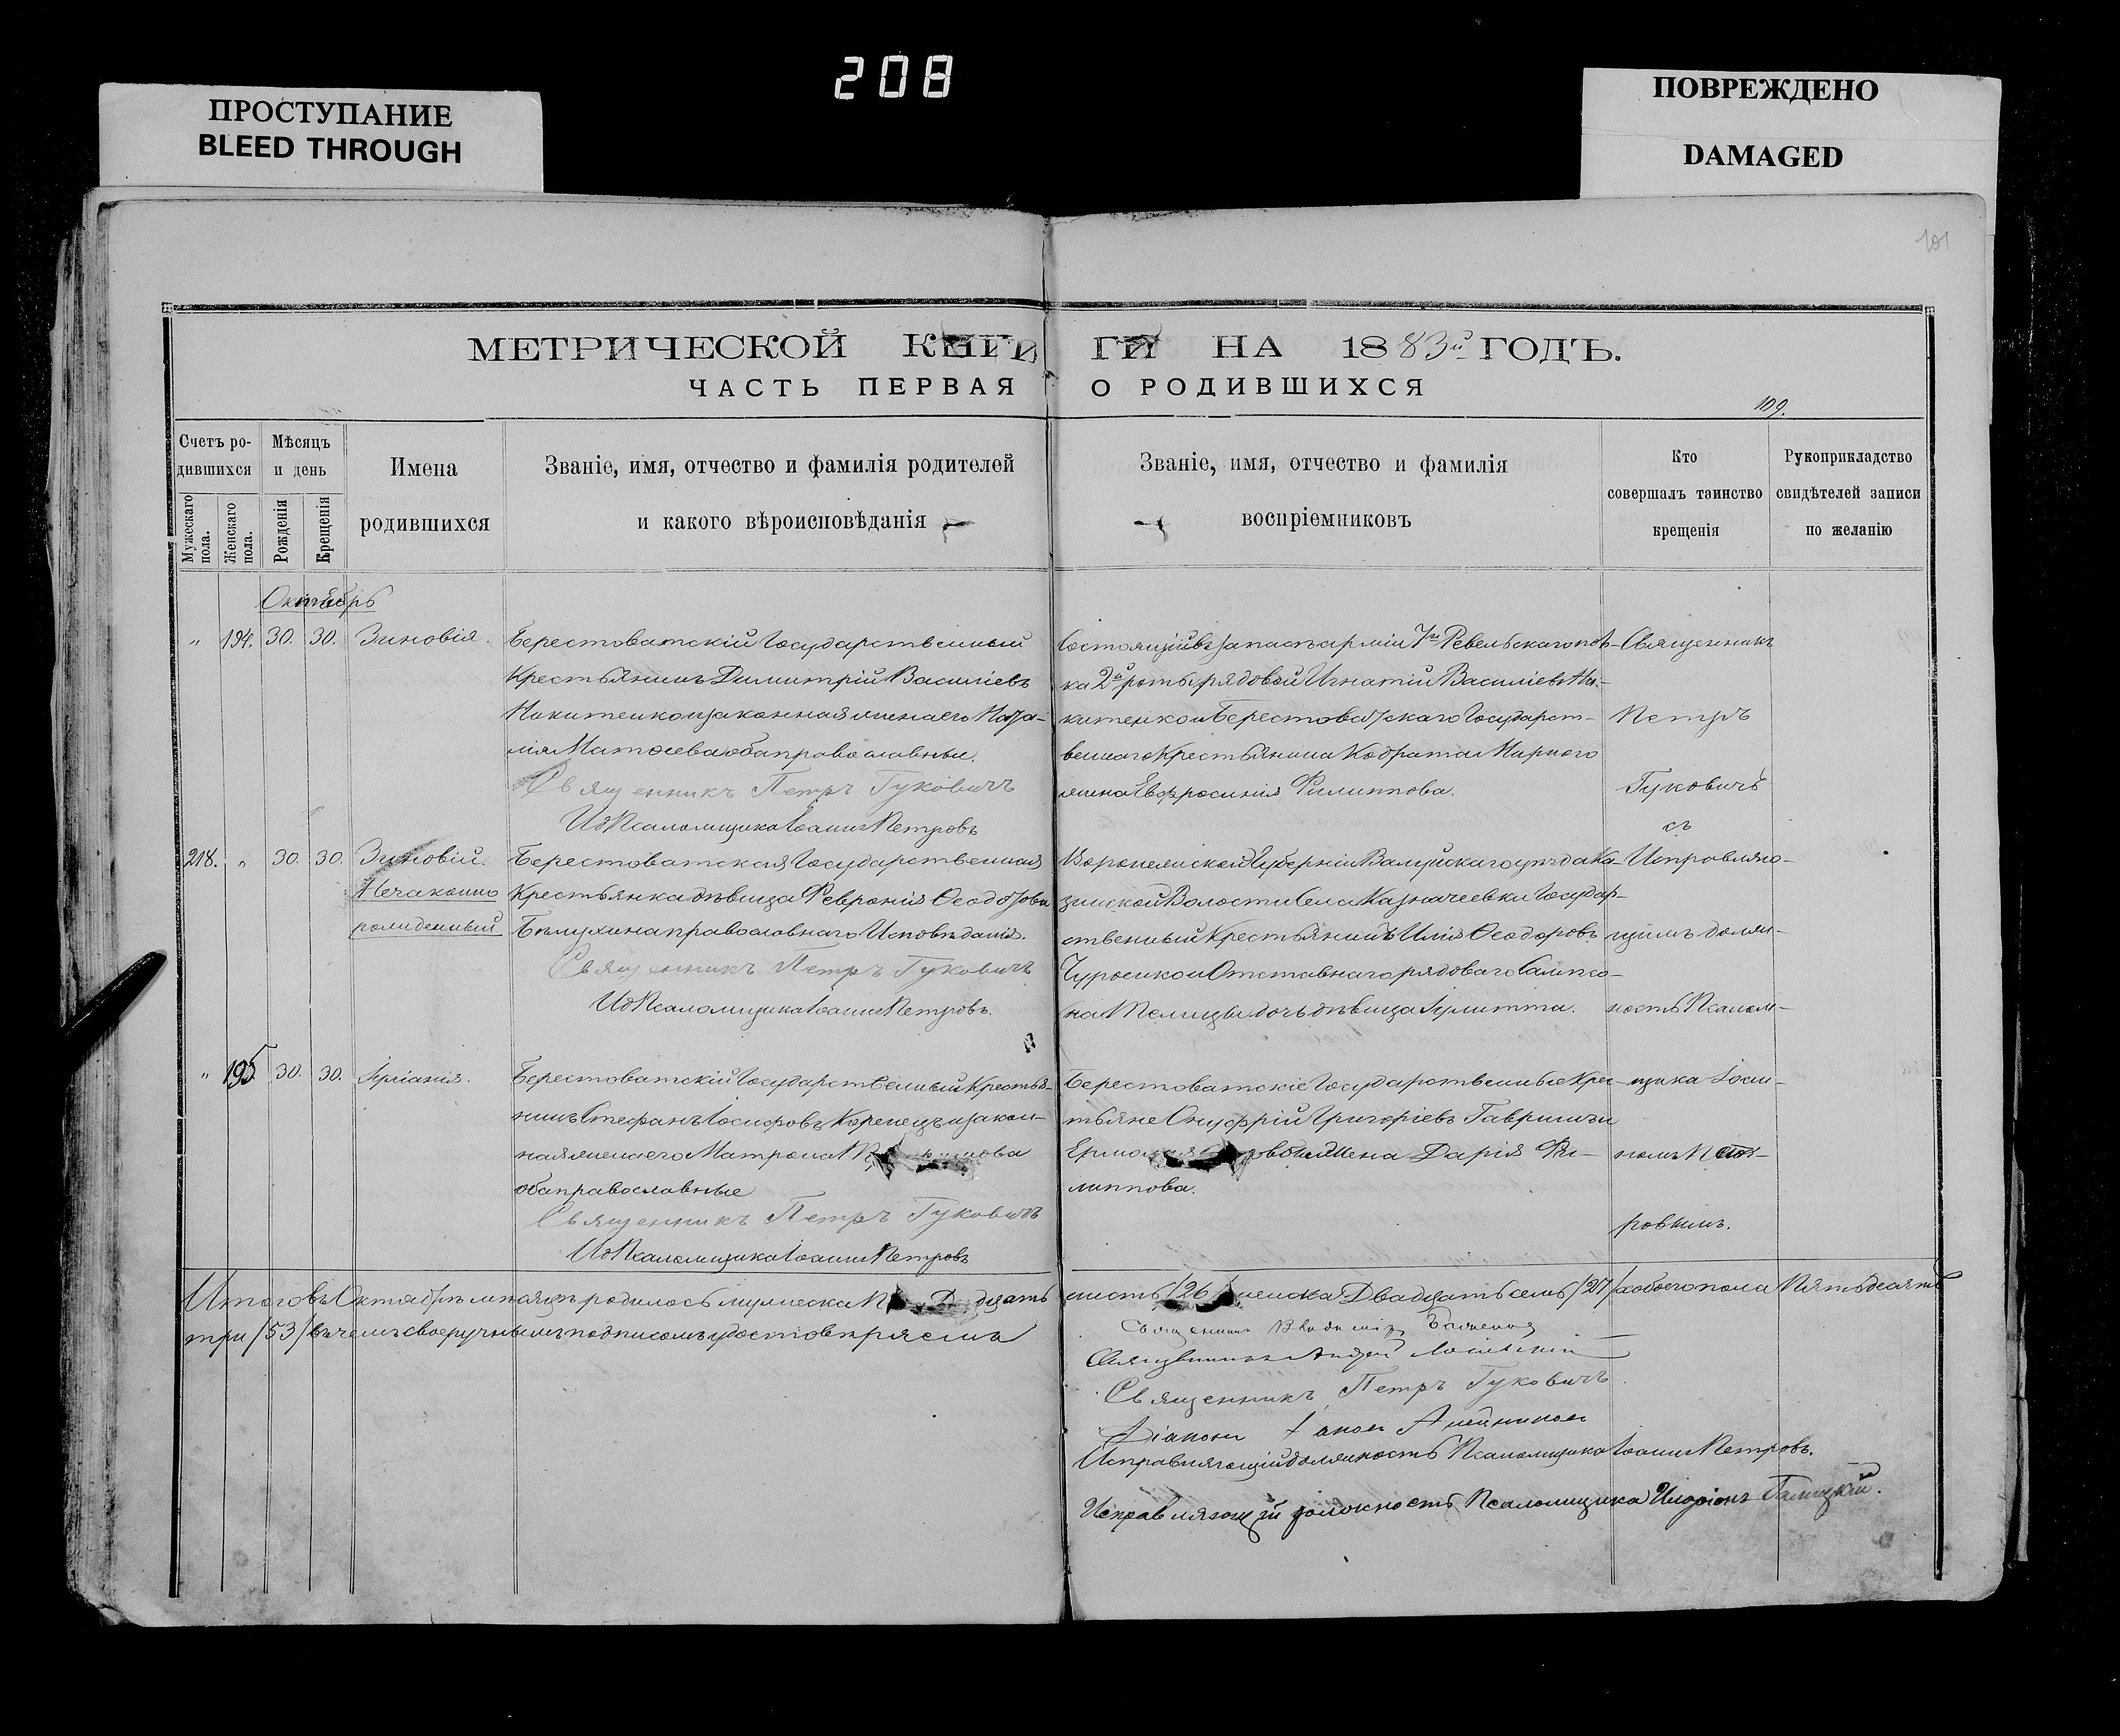 208
ПРОСТУПАНИЕ
BLEED THROUGH
ПОВРЕЖДЕНО
DAMAGED
101
МЕТРИЧЕСКОЙ КНИГИ ГИ НА 1883й ГОДЪ.
ЧАСТЬ ПЕРВАЯ О РОДИВШИХСЯ
109.
Счетъ ро-
дившихся
Мужескаго пола.
Женскаго пола.
Мѣсяцъ
и день
Рожденія
Крещенія
Имена
родившихся
Званіе, имя, отчество и фамилія родителей
и какого вѣроисповѣданія
Званіе, имя, отчество и фамилія
воспріемниковъ
Кто
совершалъ таинство
крещенія
Рукоприкладство
свидѣтелей записи
по желанію
Октябрь
" 194. 30. 30. Зиновія.
Берестоватскій Государственный
Крестьянинъ Димитрій Василіевъ
Никитенко и законная жена его Ната-
лія Матѳева оба православные.
Священникъ Петръ Гуковичъ
Ид Псаломщика Іоаннъ Петровъ
Состоящій въ запасѣ арміи 7го Ревельскаго пол-
ка 2й роты рядовой Игнатій Василіевъ Ни-
китенко и Берестоватскаго Государст-
веннаго Крестьянина Кодрата Мирного
жена Евфросинія Филиппова.
Священникъ
Петръ
Гуковичъ
съ
218. " 30. 30. Зиновій.
Незаконно
рожденный
Берестоватская Государственная
Крестьянка дѣвица Февронія Ѳеодотова
Бѣлухина православнаго Исповѣданія.
Священникъ Петръ Гуковичъ
Ид Псаломщика Іоаннъ Петровъ.
Воронежской Губерніи Валуйскаго уѣзда Ка-
зинской Волости Села Казначеевки Государ-
ственный Крестьянинъ Илія Ѳеодоровъ
Чурсинко и Отставнаго рядоваго Сампсо-
на Телицы дочь дѣвица Іулитта.
Исправляю-
щимъ долж-
ность Псалом-
" 195 30. 30. Аріанія.
Берестоватскій Государственный Крестья-
нинъ Стефанъ Іосифовъ Коренецъ и закон-
ная жена его Матрона
оба православные
Священникъ Петръ Гуковичъ
Ид Псаломщика Іоаннъ Петровъ
Берестоватскіе Государственные Крес-
тьяне Онуфрій Григоріевъ Гавришъ и
жена Дарія Фи-
липпова.
щика Іоан-
номъ Пет-
ровымъ.
Итого въ Октябрѣ мѣсяцѣ родилось мужеска Двадцать
шесть /26/ женска Двадцать семь /27/ а обоего пола Пятьдесятъ
три /53/ въ чемъ своеручнымъ подписомъ удостовѣряемъ
Священникъ Владиміръ
Священникъ Андрей
Священникъ Петръ Гуковичъ.
Діаконъ
Исправляющій должность Псаломщика Іоаннъ Петровъ.
Исправляющій должность Псаломщика Иларіонъ Галицкій.